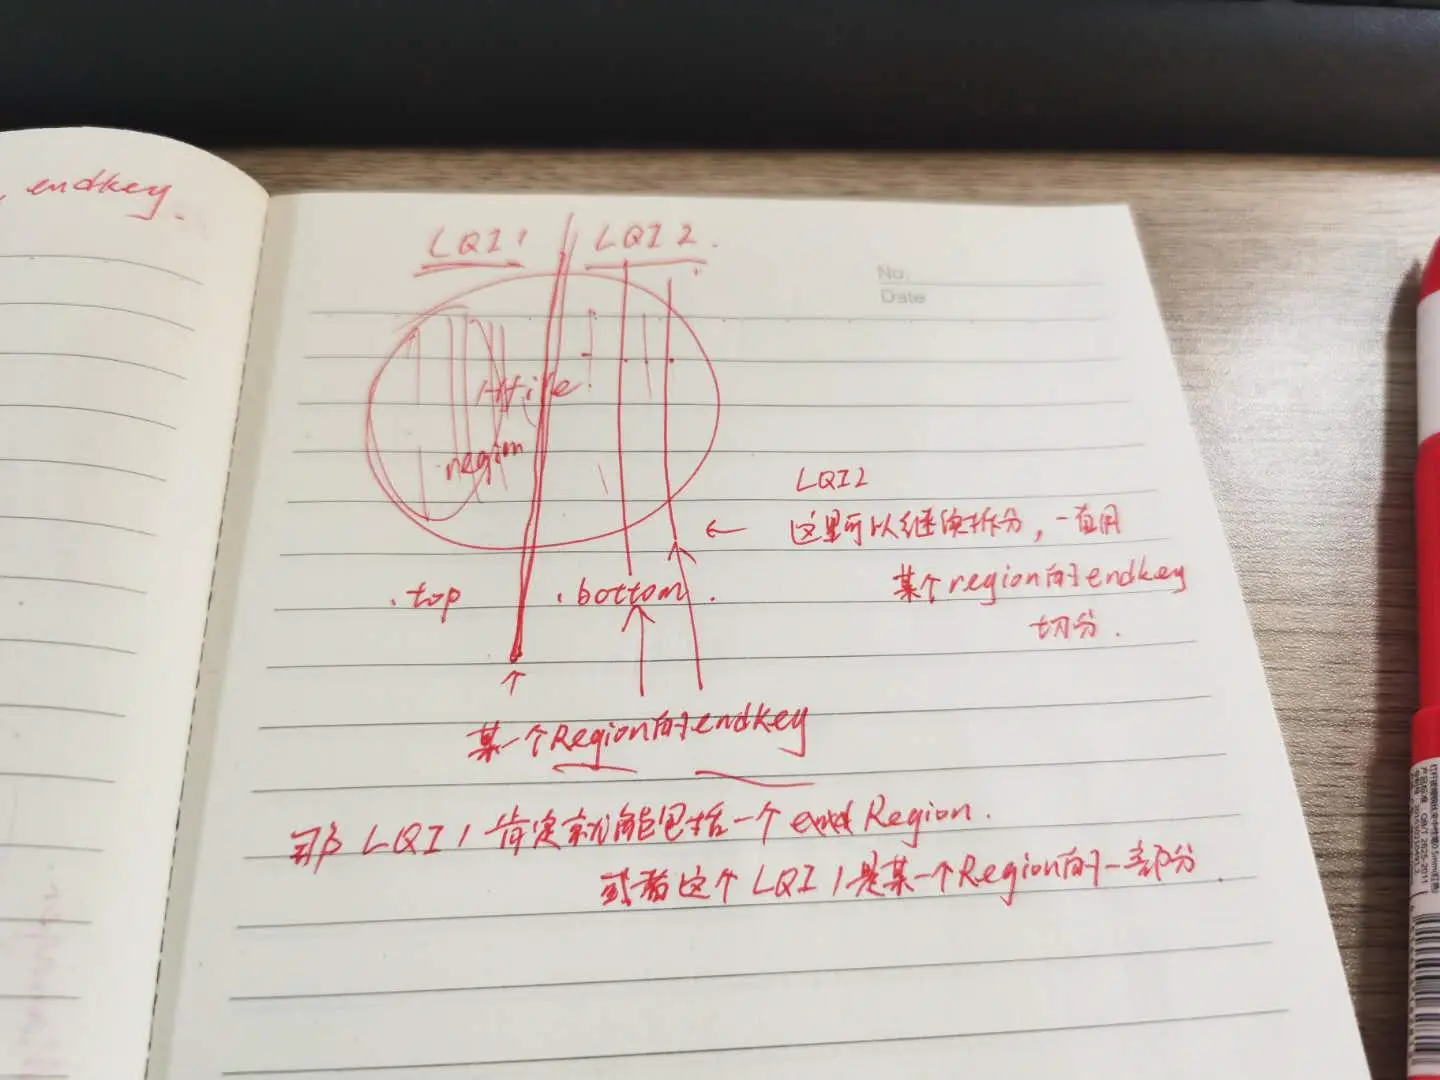 endkey.
LQI1
LQI2.
No.
Date
region
LQI2
这里可以继续拆分，一直用
某个region的endkey
切分.
.top
.bottom.
某一个Region的endkey
那LQI1肯定就能包括一个 Region.
或者这个LQI1是某一个Region的一部分